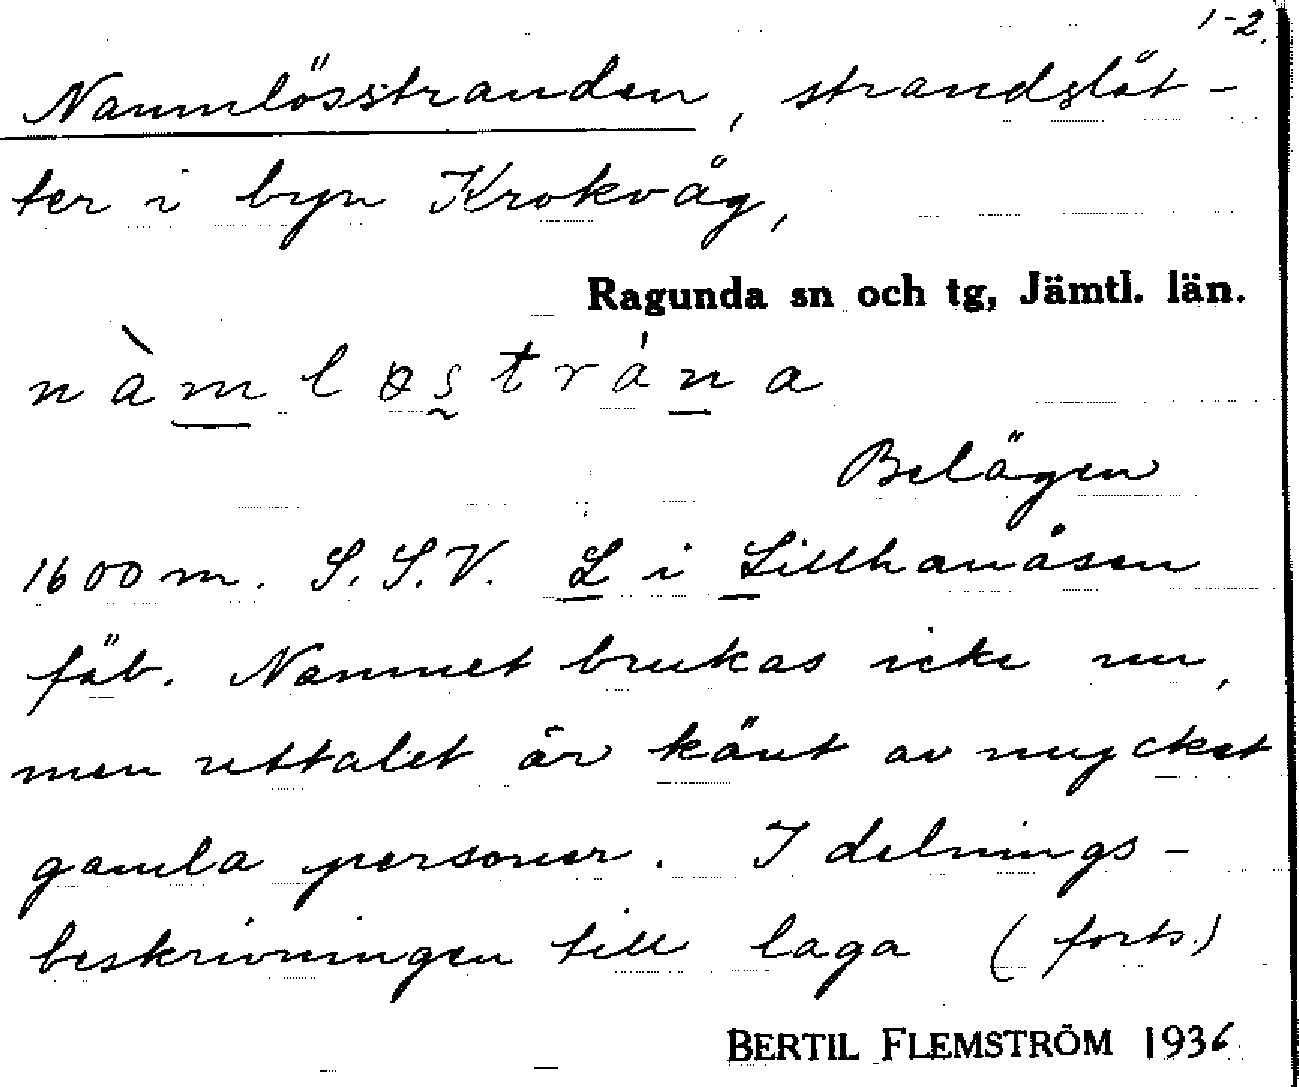 1-2.
Namnlösstranden, strandslåt-
ter i byn Krokvåg,
Ragunda sn och tg, Jämtl. län.
nàmløstrána
Belägen
1600 m. S.S.V. L i Lillhanåsen
fäb. Namnet brukas icke nu,
men uttalet är känt av mycket
gamla personer. I delnings-
beskrivningen till laga (forts.)
BERTIL FLEMSTRÖM 1936